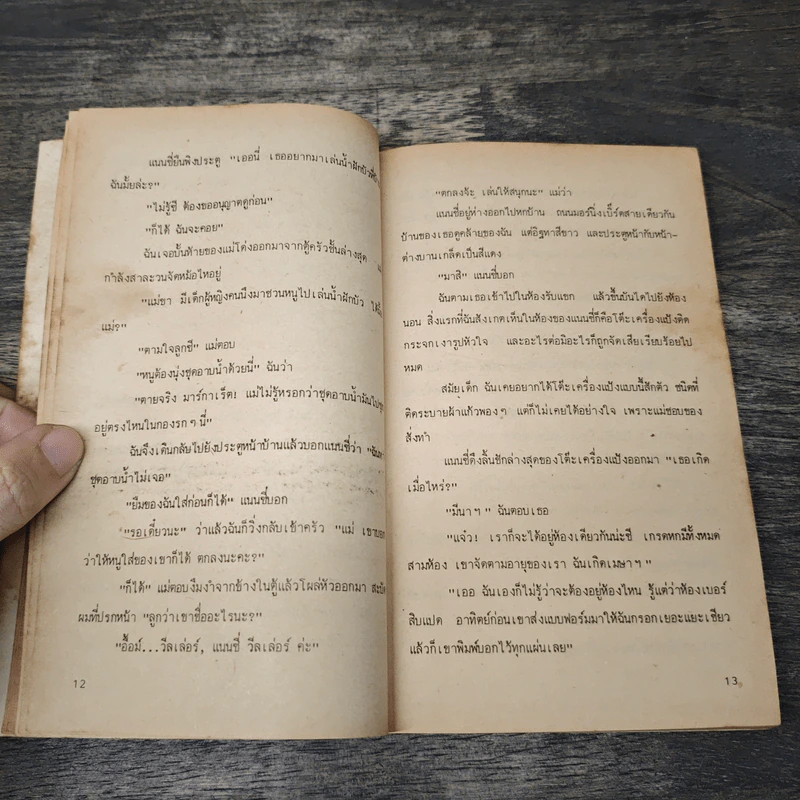 แนนซี่ยืนพิงประตู "เออนี่ เธออยากมาเล่นน้ำฝักบัว
ฉันมั้ยล่ะ?"
"ไม่รู้ซี ต้องขออนุญาตดูก่อน"
"ก็ได้ ฉันจะคอย"
ฉันเจอบั้นท้ายของแม่โด่งออกมาจากตู้ครัวชั้นล่างสุด
กำลังสาละวนจัดหม้อไหอยู่
"แม่ขา มีเด็กผู้หญิงคนนึงมาชวนหนูไปเล่นน้ำฝักบัว
แม่?"
"ตามใจลูกซี" แม่ตอบ
"หนูต้องนุ่งชุดอาบน้ำด้วยนี่" ฉันว่า
"ตายจริง มาร์กาเร็ต! แม่ไม่รู้หรอกว่าชุดอาบน้ำมันไป
อยู่ตรงไหนในกองรกๆนี่"
ฉันจึงเดินกลับไปยังประตูหน้าบ้านแล้วบอกแนนซี่ว่า
ชุดอาบน้ำไม่เจอ"
"ยืมของฉันใส่ก่อนก็ได้" แนนซี่บอก
"รอเดี๋ยวนะ" ว่าแล้วฉันก็วิ่งกลับเข้าครัว "แม่ เขาบอก
ว่าให้หนูใส่ของเขาก็ได้ ตกลงนะคะ?"
"ก็ได้" แม่ตอบงึมงำจากข้างในตู้แล้วโผล่หัวออกมา
ผมที่ปรกหน้า "ลูกว่าเขาชื่ออะไรนะ?"
"อื้อม์...วีลเล่อร์, แนนซี่ วีลเล่อร์ ค่ะ"
12
"ตกลงจ้ะ เล่นให้สนุกนะ" แม่ว่า
แนนซี่อยู่ห่างออกไปหกบ้าน ถนนมอร์นิ่งเบิ็ร์ดสายเดียวกัน
บ้านของเธอดูคล้ายของฉัน แต่อิฐทาสีขาว และประตูหน้ากับหน้า-
ต่างบานเกล็ดเป็นสีแดง
"มาสิ" แนนซี่บอก
ฉันตามเธอเข้าไปในห้องรับแขก แล้วขึ้นบันไดไปยังห้อง
นอน สิ่งแรกที่ฉันสังเกตเห็นในห้องของแนนซี่ก็คือโต๊ะเครื่องแป้งติด
กระจกเงารูปหัวใจ และอะไรต่อมิอะไรก็ถูกจัดเสียเรียบร้อยไป
หมด
สมัยเด็ก ฉันเคยอยากได้โต๊ะเครื่องแป้งแบบนี้สักตัว ชนิดที่
ติดระบายผ้าแก้วพองๆ แต่ก็ไม่เคยได้อย่างใจ เพราะแม่ชอบของ
สั่งทำ
แนนซี่ดึงลิ้นชักล่างสุดของโต๊ะเครื่องแป้งออกมา "เธอเกิด
เมื่อไหร่?"
"มีนาฯ" ฉันตอบเธอ
"แจ๋ว! เราก็จะได้อยู่ห้องเดียวกันน่ะซี เกรดหกมีทั้งหมด
สามห้อง เขาจัดตามอายุของเรา ฉันเกิดเมษาฯ"
"เออ ฉันเองก็ไม่รู้ว่าจะต้องอยู่ห้องไหน รู้แต่ว่าห้องเบอร์
สิบแปด อาทิตย์ก่อนเขาส่งแบบฟอร์มมาให้ฉันกรอกเยอะแยะเชียว
แล้วก็เขาพิมพ์บอกไว้ทุกแผ่นเลย"
13